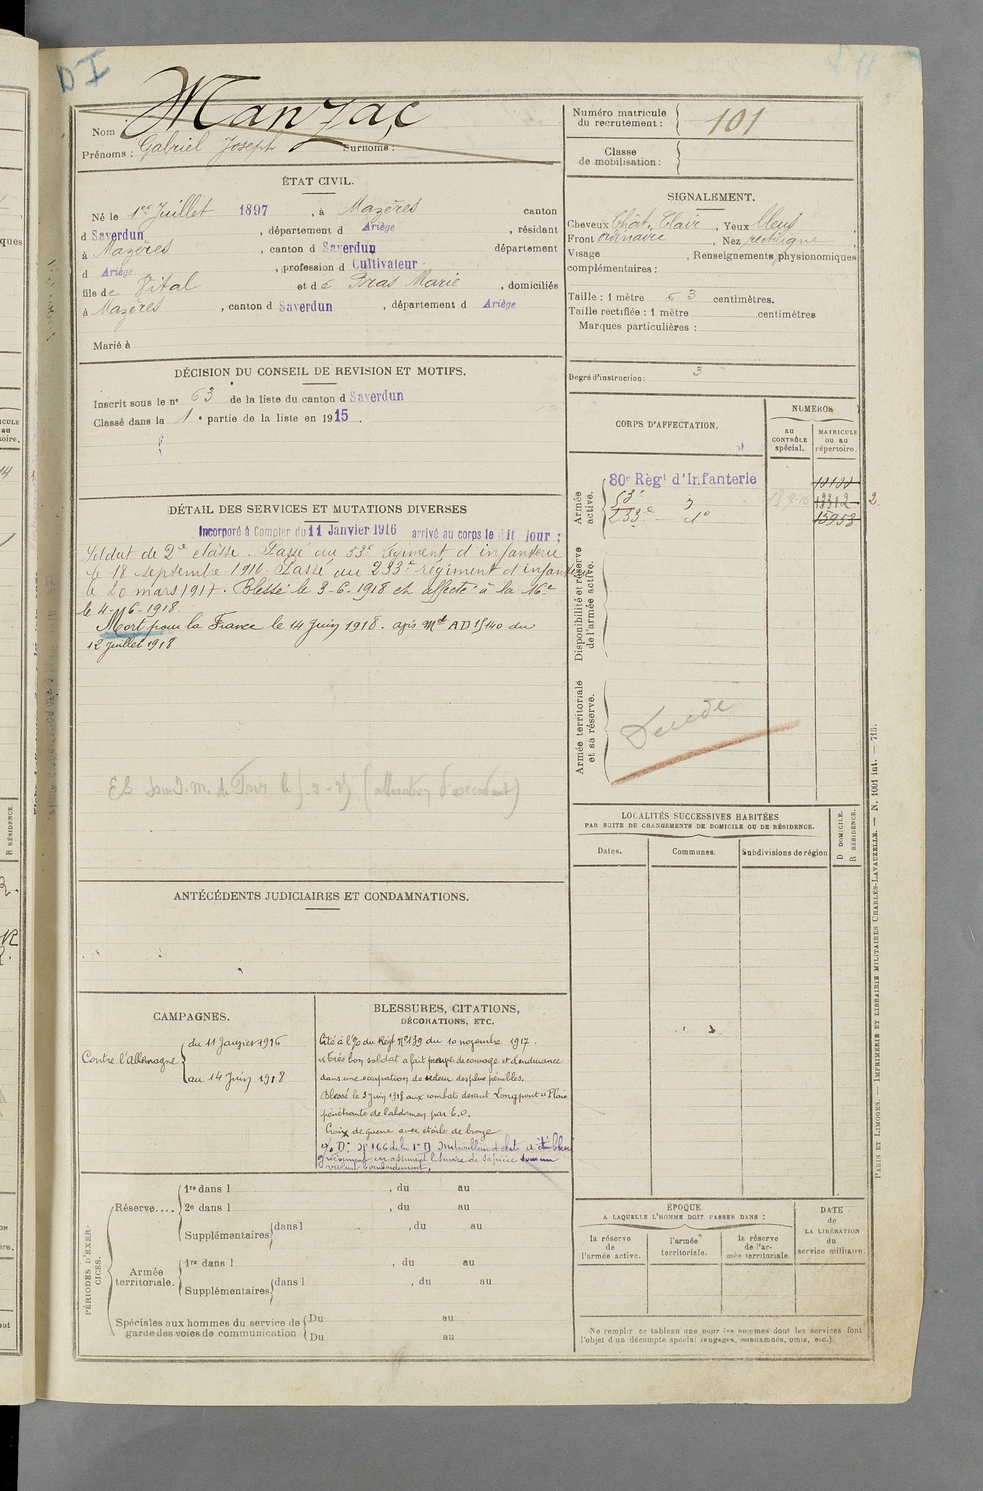 DI
Nom Manzac
Prénoms : Gabriel Joseph Surnoms :
Numéro matricule du recrutement : 101
Classe de mobilisation :
ÉTAT CIVIL.
Né le 1er Juillet 1897, à Mazères canton
d Saverdun, département d Ariège, résidant
à Mazères, canton d Saverdun département
d Ariège, profession d Cultivateur
fils de Vital et de Bras Marie, domiciliés
à Mazères, canton d Saverdun, département d Ariège
Marié à
SIGNALEMENT.
Cheveux Chât. Clair, Yeux bleus
Front ordinaire, Nez rectiligne
Visage, Renseignements physionomiques
complémentaires :
Taille : 1 mètre 63 centimètres.
Taille rectifiée : 1 mètre centimètres
Marques particulières :
Degré d'instruction : 3
DÉCISION DU CONSEIL DE REVISION ET MOTIFS.
Inscrit sous le n° 63 de la liste du canton d Saverdun
Classé dans la 1e partie de la liste en 1915.
DÉTAIL DES SERVICES ET MUTATIONS DIVERSES
Incorporé à Compter du 11 Janvier 1916 arrivé au corps le dit jour ;
Soldat de 2e classe. Passé au 53e régiment d'infanterie
le 18 septembre 1916. Passé au 233e régiment d'infanterie
le 20 mars 1917. Blessé le 3-6-1918 et affecté à la 16e
le 4-6-1918.
Mort pour la France le 14 Juin 1918. avis Mel AD 15140 du
12 Juillet 1918
CORPS D'AFFECTATION.
NUMÉROS
au CONTRÔLE spécial.
MATRICULE ou au répertoire.
Armée active.
80e Régt d'Infanterie 10101
53e 13312 2
233e do 15953
Disponibilité et réserve de l'armée active.
Armée territoriale et sa réserve.
Décédé
LOCALITÉS SUCCESSIVES HABITÉES
PAR SUITE DE CHANGEMENTS DE DOMICILE OU DE RÉSIDENCE.
Dates.
Communes.
Subdivisions de région
D DOMICILE.
R RÉSIDENCE.
ANTÉCÉDENTS JUDICIAIRES ET CONDAMNATIONS.
CAMPAGNES.
Contre l'Allemagne
du 11 Janvier 1916
au 14 Juin 1918
BLESSURES, CITATIONS,
DÉCORATIONS, ETC.
Cité à l'O/ du Régt N° 139 du 10 novembre 1917.
« Très bon soldat a fait preuve de courage et d'endurance
dans une occupation de secteur des plus pénibles.
Blessé le 3 Juin 1918 aux combats devant Longpont « Plaie
pénétrante de l'abdomen par E.O.
Croix de guerre avec étoile de bronze
a été blessé
grièvement en assurant le service de sa pièce sous un
violent bombardement.
PÉRIODES D'EXERCICES.
Réserve....
1re dans l , du au
2e dans l , du au
Supplémentaires dans l , du au
Armée territoriale.
1re dans l , du au
Supplémentaires dans l , du au
Spéciales aux hommes du service de garde des voies de communication
Du au
Du au
ÉPOQUE
A LAQUELLE L'HOMME DOIT PASSER DANS :
la réserve de l'armée active.
l'armée territoriale.
la réserve de l'armée territoriale.
DATE de LA LIBÉRATION du service militaire.
Ne remplir ce tableau que pour les hommes dont les services font
l'objet d'un décompte spécial (engagés, condamnés, omis, etc.).
PARIS ET LIMOGES. — IMPRIMERIE ET LIBRAIRIE MILITAIRES CHARLES-LAVAUZELLE. — N. 1001 int. — 715.